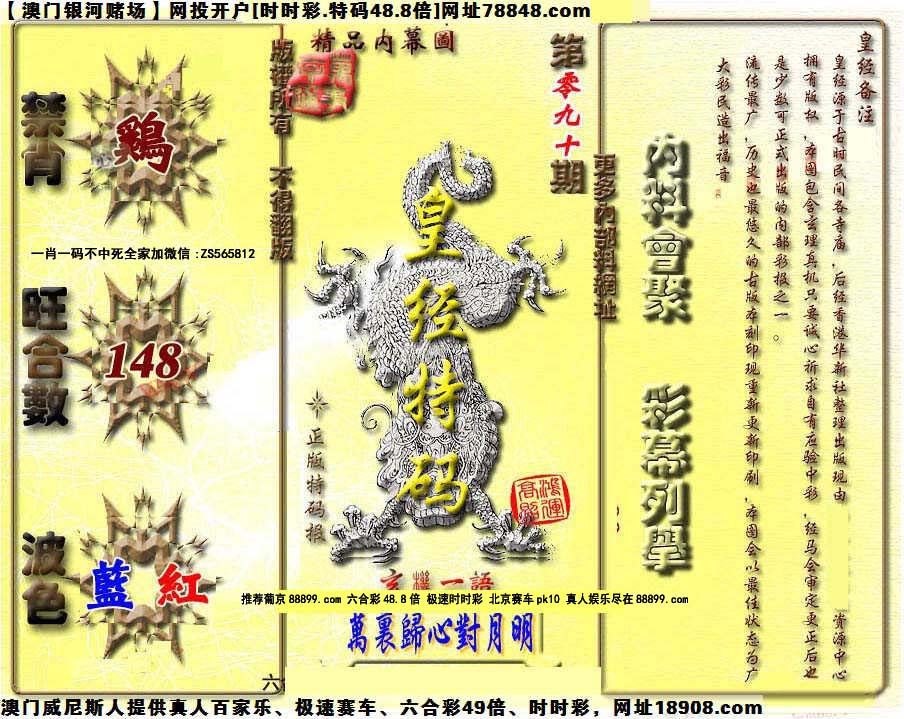 【澳门银河赌场】网投开户[时时彩.特码48.8倍]网址78848.com
精品内幕圖
版權所有 不得翻版
第零九十期
更多內部料網址
禁肖
鷄
一肖一码不中死全家加微信:ZS565812
旺合數
148
波色
藍 紅
皇经特码
正版特码报
鴻運高照
玄機一語
推荐葡京88899.com 六合彩48.8倍 极速时时彩 北京赛车pk10 真人娱乐尽在88899.com
萬裏歸心對月明
内料會聚
彩幕列舉
皇经备注
皇经源于古时民间各寺庙,后经香港华新社整理出版现由 资源中心
拥有版权,本图包含玄理真机只要诚心祈求自有应验中彩,经马会审定更正后也
是少数可正式出版的内部彩报之一。
流传最广,历史也最悠久的古版本刻印现重新更新印刷,本图会以最佳状态为广
大彩民造出福音
六
澳门威尼斯人提供真人百家乐、极速赛车、六合彩49倍、时时彩，网址18908.com